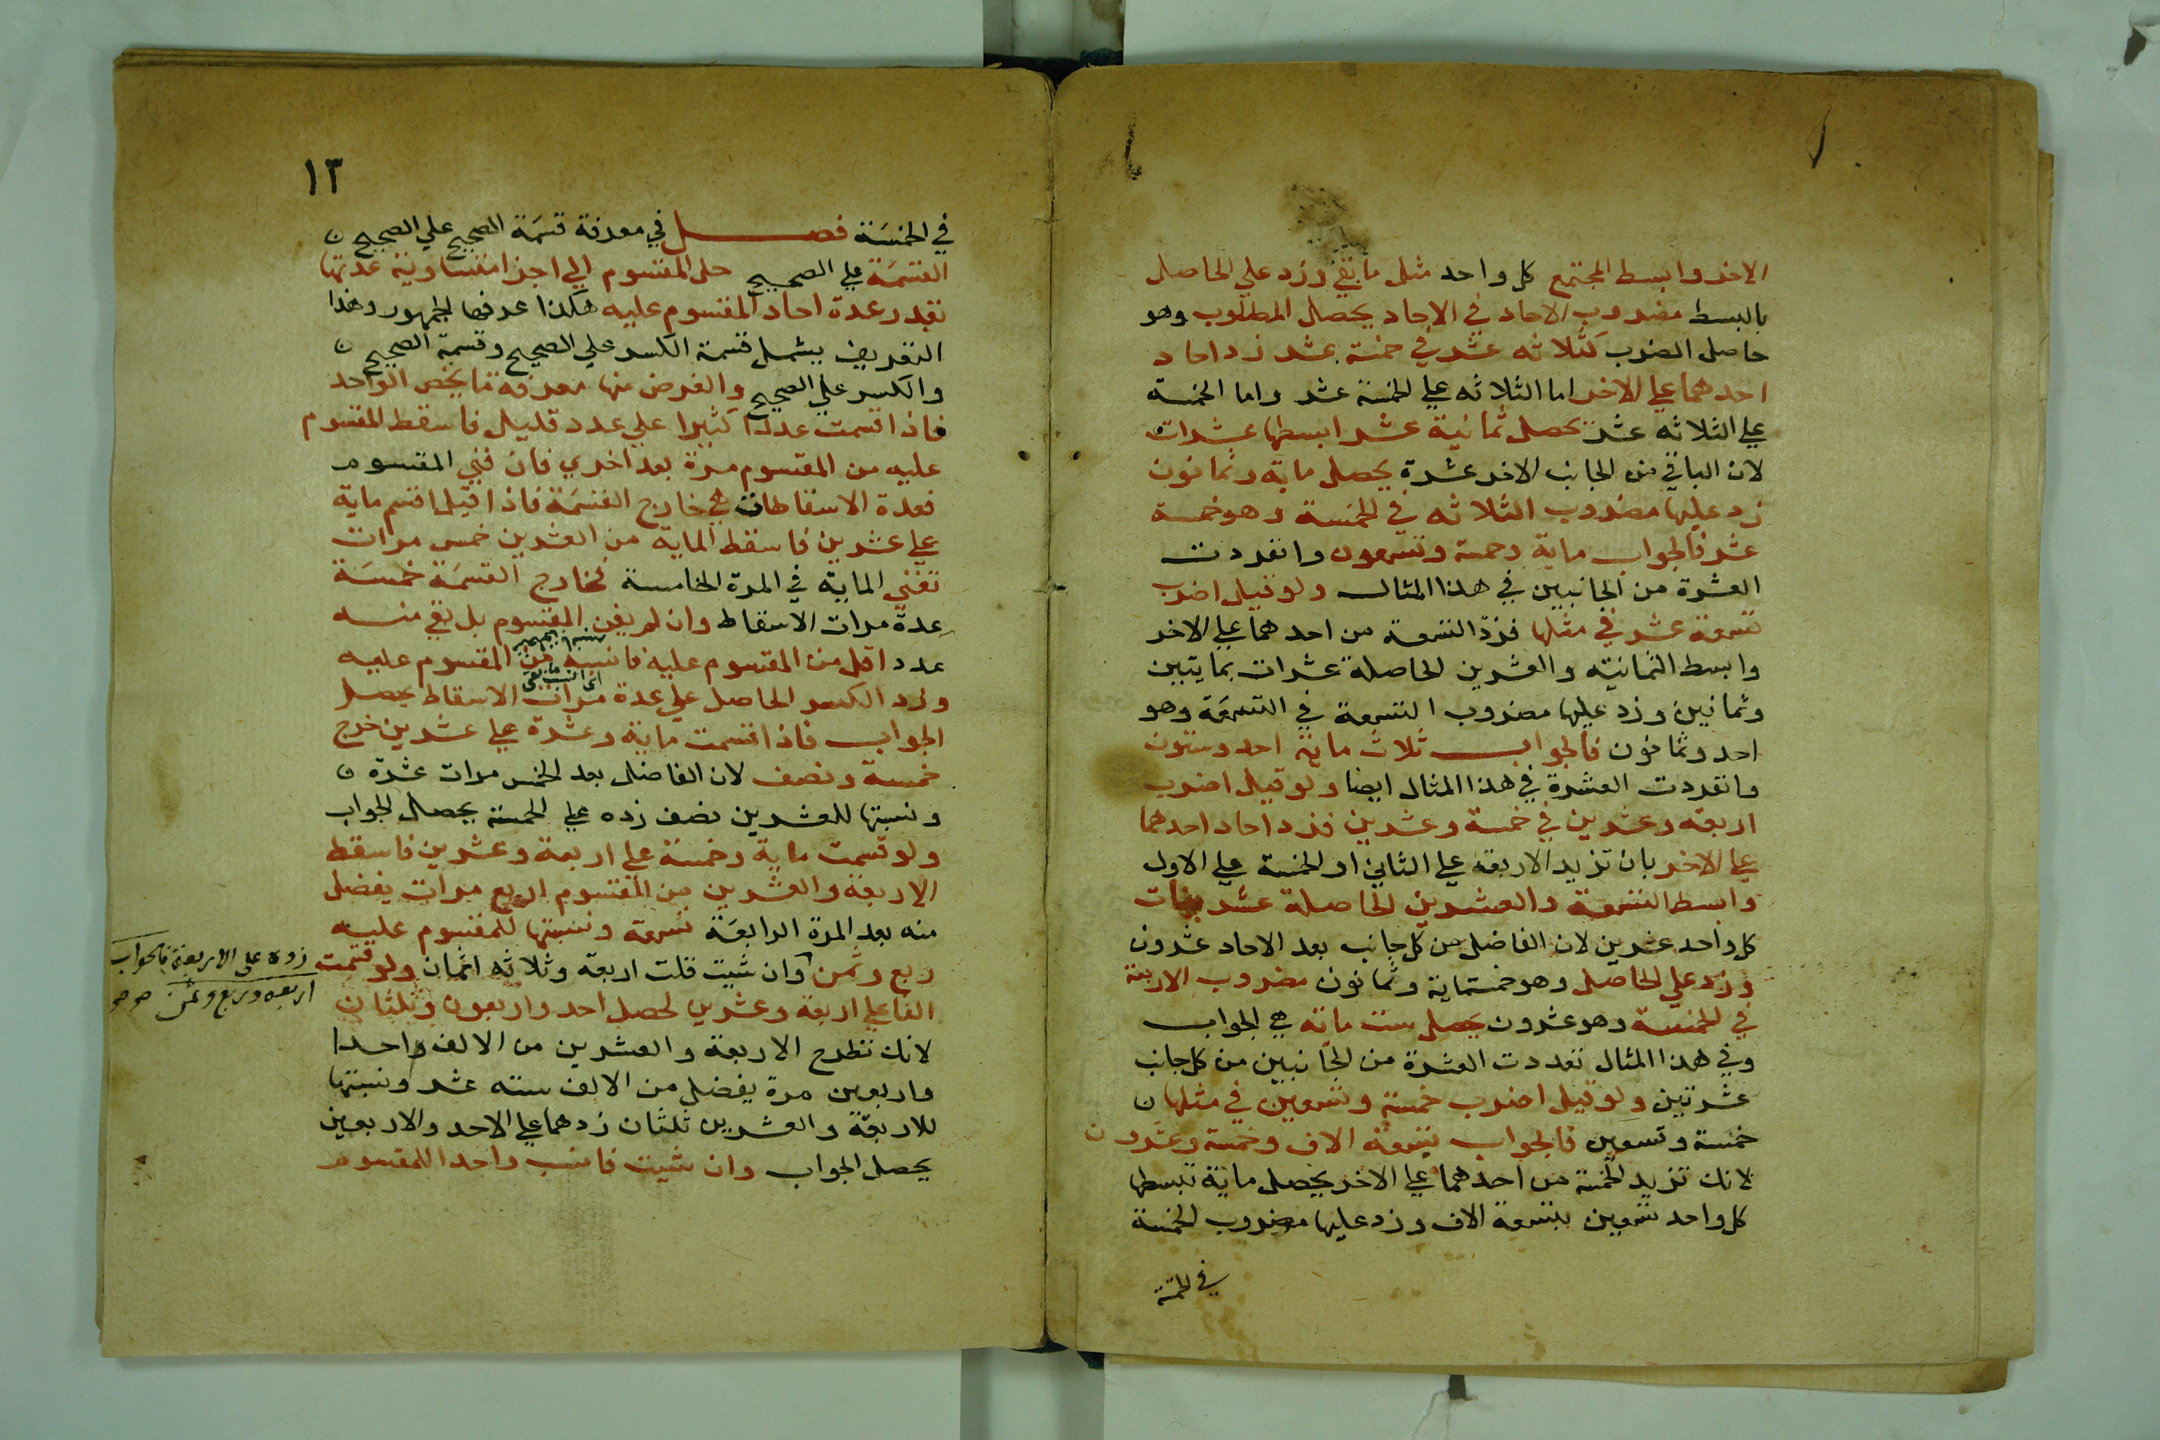 الاخر وابسط المجتمع كل واحد مثل ما بقي وزد علي الحاصل
بالبسط مضروب الاحاد في الاحاد يحصل المطلوب وهو
حاصل الضرب كثلاثه عشر في خمسة عشر زد احاد
احدهما علي الاخر اما الثلاثه علي الخمسة عشر واما الخمسة
علي الثلاثه عشر يحصل ثمانية عشر ابسطها عشرات
لان الباقي من الجانب الاخر عشرة يحصل ماية وثمانون
زد عليها مضروب الثلاثه في الخمسة وهو خمسة
عشر فالجواب ماية وخمسة وتسعون وانفردت
العشرة من الجانبين في هذا المثال ولو قيل اضرب
تسعة عشر في مثلها فزد التسعة من احدهما علي الاخر
وابسط الثمانية والعشرين الحاصلة عشرات بمايتين
وثمانين وزد عليها مضروب التسعة في التسعة وهو
احد وثمانون فالجواب ثلاث ماية احد وستون
وانفردت العشرة في هذا المثال ايضا ولو قيل اضرب
اربعة وعشرين في خمسة وعشرين فزد احاد احدهما
علي الاخر بان تزيد الاربعة علي الثاني او الخمسة علي الاول
وابسط التسعة والعشرين الحاصلة عشرينات
كل واحد عشرين لان الفاضل من كل جانب بعد الاحاد عشرون
وزد علي الحاصل وهو خمسماية وثمانون مضروب الاربعة
في الخمسة وهو عشرون يحصل ست ماية هي الجواب
وفي هذا المثال تعددت العشرة من الجانبين من كل جانب
عشرتين ولو قيل اضرب خمسة وتسعين في مثلها
خمسة وتسعين فالجواب تسعة الاف وخمسة وعشرون
لانك تزيد الخمسة من احدهما علي الاخر يحصل ماية تبسطها
كل واحد تسعين بتسعة الاف وزد عليها مضروب الخمسة
في الخمسة
١٣
في الخمسة فصل في معرفة قسمة الصحيح علي الصحيح
القسمة علي الصحيح حل المقسوم الي اجزا متساوية عدتها
بقدر عدة احاد المقسوم عليه هكذا عرفها الجمهور وهذا
التعريف يشمل قسمة الكسر علي الصحيح وقسمة الصحيح
والكسر علي الصحيح والغرض منها معرفة ما يخص الواحد
فاذا قسمت عددا كثيرا علي عدد قليل فاسقط المقسوم
عليه من المقسوم مرة بعد اخري فان فني المقسوم
فعدة الاسقاطات هي خارج القسمة فاذا قيل اقسم ماية
علي عشرين فاسقط الماية من العشرين خمس مرات
تفني الماية في المرة الخامسة فخارج القسمة خمسة
عدة مرات الاسقاط وان لم يفن المقسوم بل بقي منه
عدد اقل من المقسوم عليه فانسبه من المقسوم عليه
وزد الكسر الحاصل علي عدة مرات الاسقاط يحصل
الجواب فاذا قسمت ماية وعشرة علي عشرين خرج
خمسة ونصف لان الفاضل بعد الخمس مرات عشرة
ونسبتها للعشرين نصف زده علي الخمسة يحصل الجواب
ولو قسمت ماية وخمسة علي اربعة وعشرين فاسقط
الاربعة والعشرين من المقسوم اربع مرات يفضل
منه بعد المرة الرابعة تسعة ونسبتها للمقسوم عليه
ربع وثمن وان شيت قلت اربعة وثلاثه اثمان ولو قسمت
الفا علي اربعة وعشرين لحصل احد واربعون وثلثان
لانك تطرح الاربعة والعشرين من الالف واحدا
واربعين مرة يفضل من الالف ستة عشر ونسبتها
للاربعة والعشرين ثلثان زدهما علي الاحد والاربعين
يحصل الجواب وان شيت فانسب واحدا للمقسوم
زده على الاربعة فالجواب
اربعة وربع وثمن